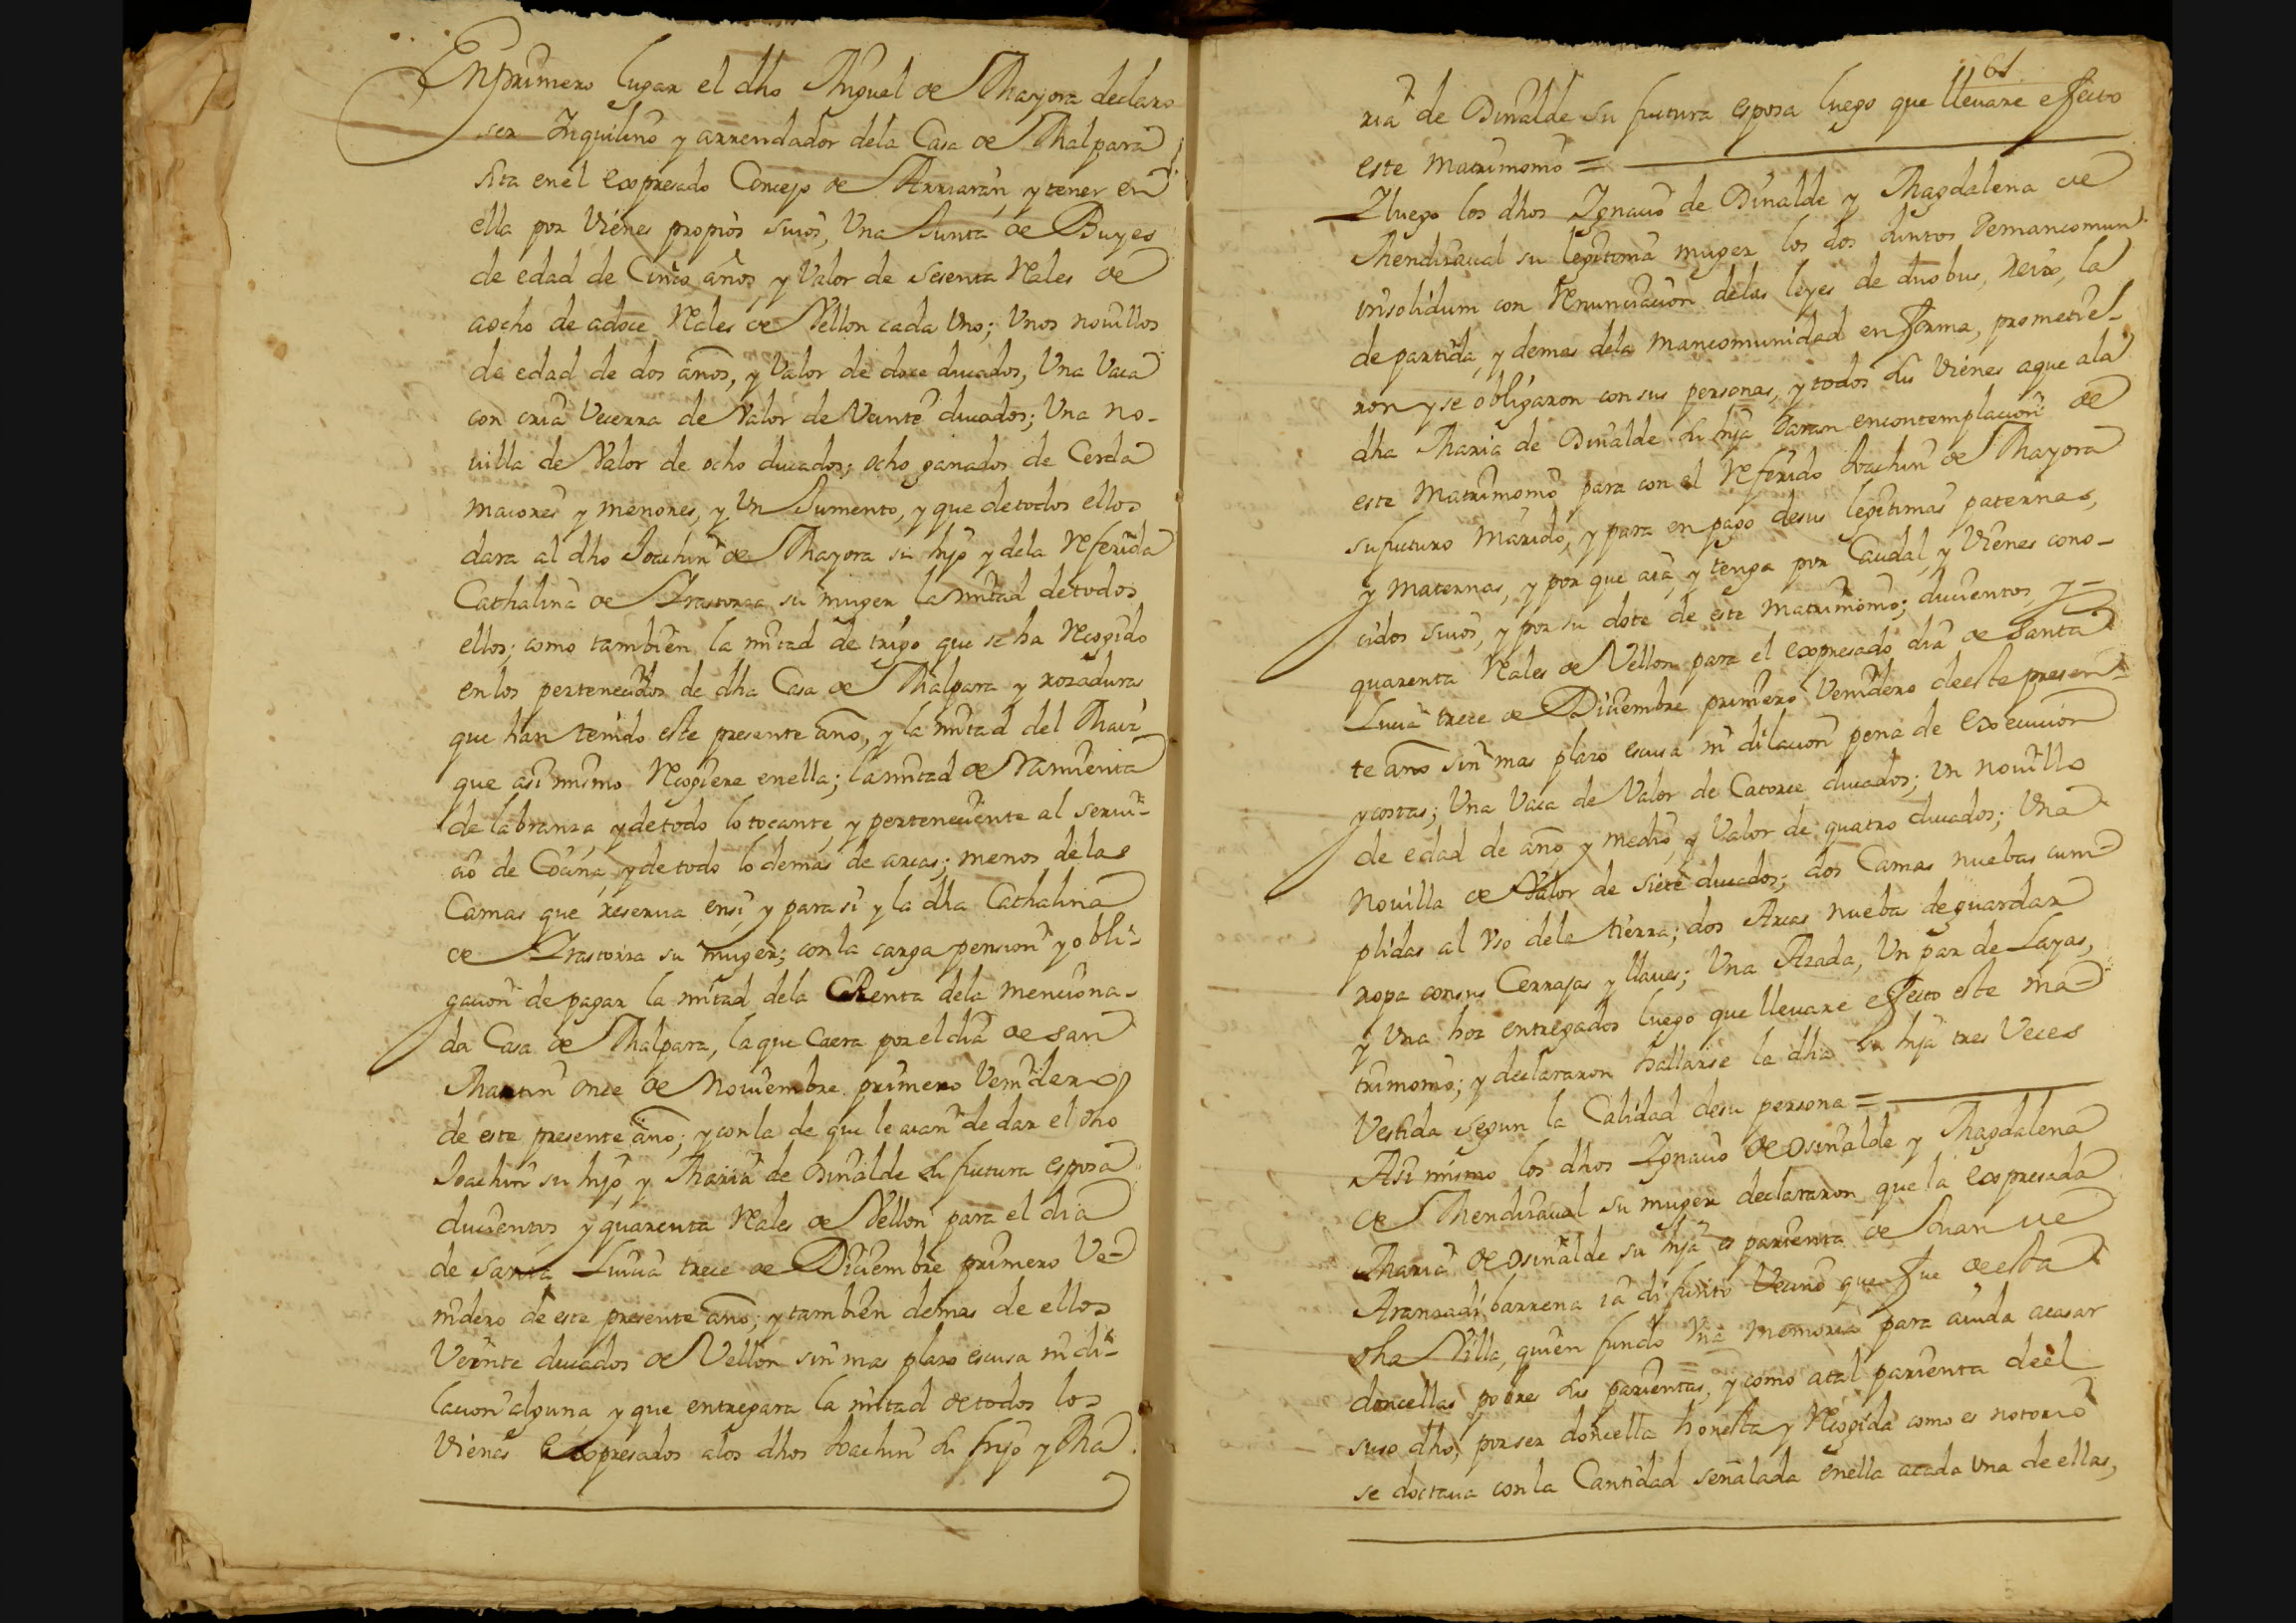 Enprimero lugar el dho Miguel de Mayora declaro
ser Inquilino y arrendador dela Casa de Malpara
sita enel expresado Concejo de Arriaran, y tener en
ella por vienes propios suios, Una Junta de Buyes
de edad de Cinco años, y Valor de sesenta Reales de
aocho de adoce Reales de Vellon cada Uno; Unos nouillos
de edad de dos años, y Valor de doce ducados, Una Vaca
con cria Vecerra de Valor de Veinte ducados; Una no-
uilla de Valor de ocho ducados; ocho ganados de Cerda
maiores y menores, y Un Jumento, y que detodos ellos
dara al dho Joachin de Mayora su hijo y dela Referida
Cathalina de Irastorza su muger la mitad detodos
ellos; como tambien la mitad de trigo que se ha Recogido
enlos pertenecidos de dha Casa de Malpara y rozaduras
que han tenido este presente año, y la mitad del Maiz
que asi mismo Recogiere enella; la mitad de ramienta
de labranza, ydetodo lo tocante, y perteneciente al serui-
cio de Cocina, ydetodo lo demas de arcas; menos delas
Camas que reserua ensi, y para si y la dha Cathalina
de Irastorza su muger; conla carga pension y obli-
gacion de pagar la mitad dela Renta dela menciona-
da Casa de Malpara, laque Caera por el dia de san
Martin once de Nouiembre primero Venidero
de este presente año; y conla de que le aian de dar el dho
Joachin su hijo, y Maria de Osinalde su futura esposa
ducientos y quarenta Reales de Vellon para el dia
de Santa Lucia trece de Diciembre primero Ve-
nidero de este presente año; y tambien demas de ellos
Veinte ducados de Vellon sin mas plazo escusa ni di-
lacion alguna y que entregara la mitad de todos los
Vienes Expresados alos dhos Joachin su hijo y Ma
61
ria de Osinalde su futura esposa luego que lleuare efecto
este Matrimonio =
I luego los dhos Ignacio de Osinalde y Magdalena de
Mendizaual su legitima muger los dos Juntos Demancomun
insolidum con Renunciacion delas leyes de duobus, Reis, la
departida, y demas dela Mancomunidad en forma, prometie-
ron y se obligaron con sus personas, y todos sus Vienes aque ala
dha Maria de Osinalde su hija daran encontemplacion de
este Matrimonio para con el Referido Joachin de Mayora
su futuro Marido, y para en pago desus legitimas paternas,
y maternas, y por que aia, y tenga por Caudal, y Vienes cono-
cidos suios, y por su dote de este matrimonio; ducientos, y =
quarenta Reales de Vellon para el expresado dia de Santa
Lucia trece de Diciembre primero Venidero deeste presen-
te año sin mas plazo escusa ni dilacion pena de Execucion
y costas; Una Vaca de Valor de Catorce ducados; Un nouillo
de edad de año y medio, y Valor de quatro ducados; Una
Nouilla de Valor de siete ducados; dos Camas nuebas cum-
plidas al Vso dela tierra; dos Arcas nuebas deguardar
ropa consus Cerrajas y llaues; Una Azada, Un par de Layas,
y Una hoz entregados luego que lleuare efecto este ma-
trimonio; y declararon hallarse la dha su hija tres Veces
Vestida segun la Calidad desu persona =
Asi mismo los dhos Ignacio de Osinalde y Magdalena
de Mendizaual su muger declararon que la Expresada
Maria de Osinalde su hija es parienta de Juan de
Aranzadi barrena ia difunto Vecino que fue deesta
dha Villa, quien fundo Una memoria para aiuda acasar
doncellas pobres sus parientas, y como atal parienta deel
suso dho, por ser doncella honesta y Recogida como es notorio
se doctaua conla Cantidad señalada enella acada Una de ellas,